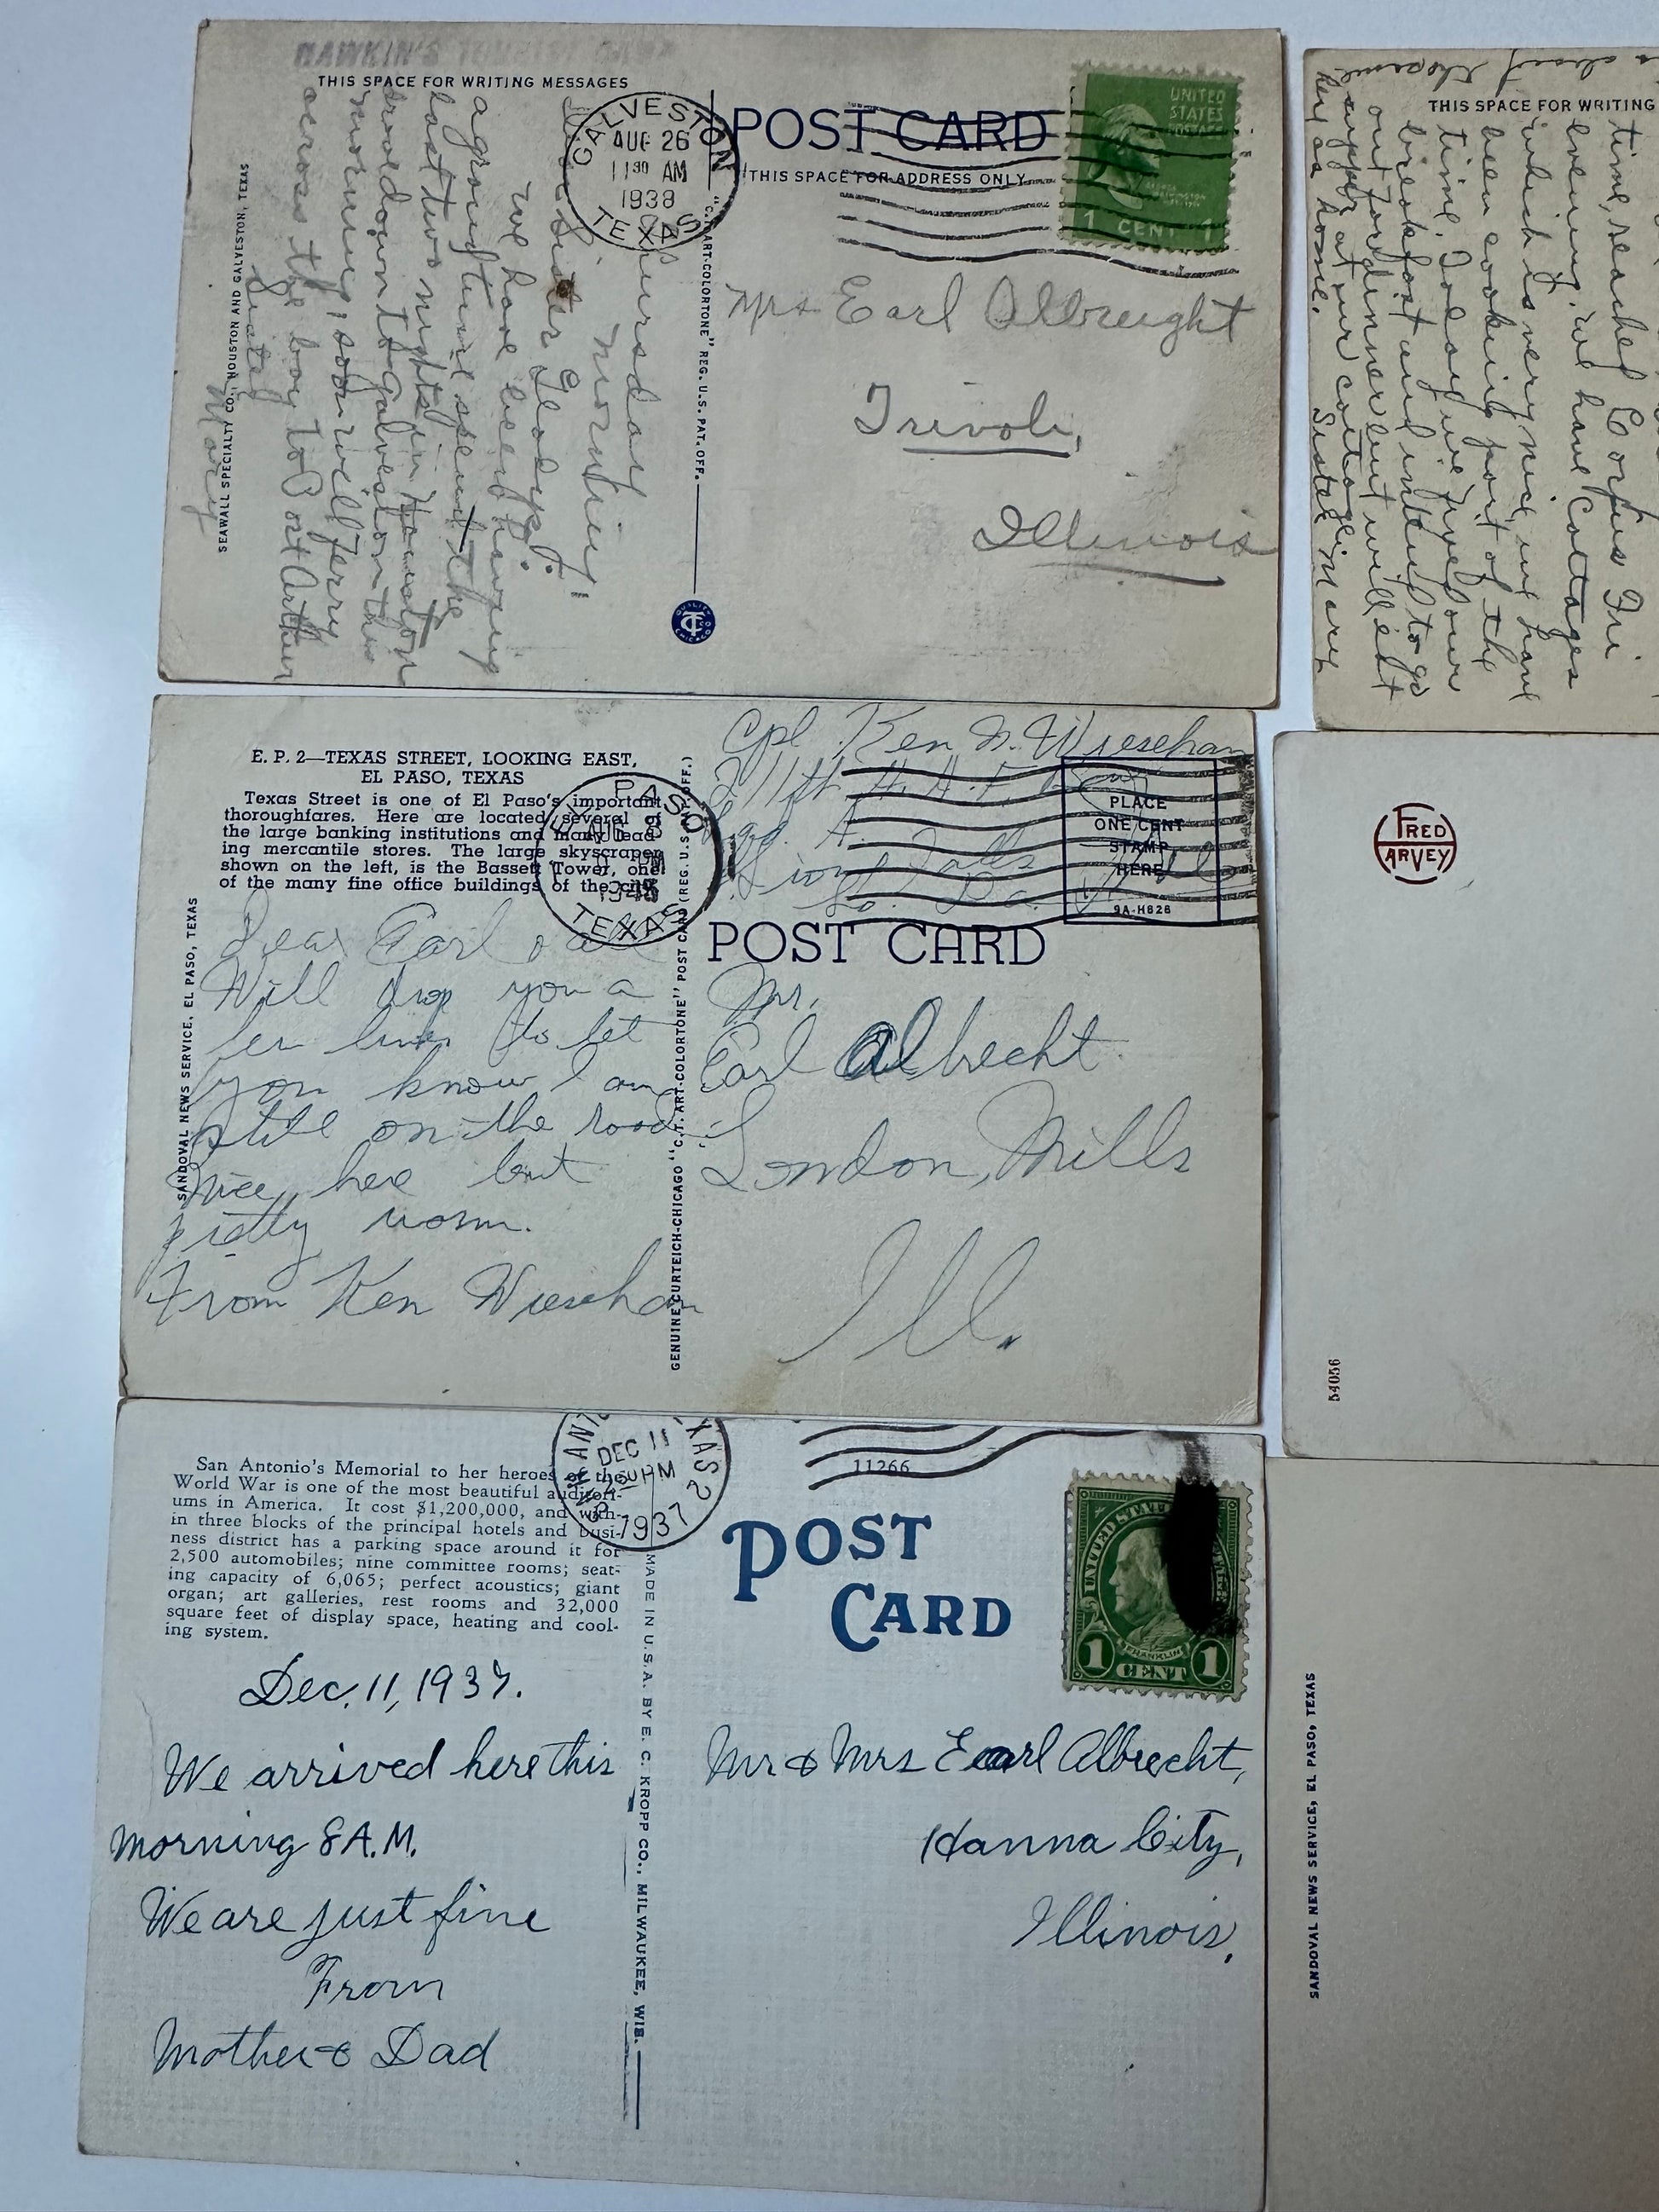 HAWKIN'S TOURIST CAMP
THIS SPACE FOR WRITING MESSAGES
GALVESTON
AUG 26
11 30 AM
1938
TEXAS
POST CARD
THIS SPACE FOR ADDRESS ONLY
UNITED
STATES
POSTAGE
1 CENT 1
Thursday
morning
Dear Sister Gladys:
We have been having
a grand time spent the
last two nights in Houston
drove down to Galveston this
morning, soon will ferry
across the bay to Port Arthur
Sister
Mary
SEAWALL SPECIALTY CO., HOUSTON AND GALVESTON, TEXAS
"C.T. ART-COLORTONE" REG. U.S. PAT. OFF.
QUALITY
CT
CHICAGO
Mrs Earl Albreight
Trivoli,
Illinois
E. P. 2—TEXAS STREET, LOOKING EAST,
EL PASO, TEXAS
Texas Street is one of El Paso's important
thoroughfares. Here are located several of
the large banking institutions and many lead-
ing mercantile stores. The large skyscraper
shown on the left, is the Bassett Tower, one
of the many fine office buildings of the city.
PASO
AUG 8
PM
TEXAS
Cpl. Ken N. Wieseham
211th A.A.F.
Sqd. A.
Sioux Falls
So. Da.
PLACE
ONE CENT
STAMP
HERE
9A-H828
POST CARD
Dear Earl & all
Will drop you a
few lines to let
you know I am
still on the road
Nice here but
pretty warm.
From Ken Wieseham
SANDOVAL NEWS SERVICE, EL PASO, TEXAS
GENUINE CURTEICH-CHICAGO "C.T. ART-COLORTONE" POST CARD (REG. U.S. PAT. OFF.)
Mr.
Earl Albrecht
London, Mills
Ill.
San Antonio's Memorial to her heroes of the
World War is one of the most beautiful auditori-
ums in America. It cost $1,200,000, and with-
in three blocks of the principal hotels and busi-
ness district has a parking space around it for
2,500 automobiles; nine committee rooms; seat-
ing capacity of 6,065; perfect acoustics; giant
organ; art galleries, rest rooms and 32,000
square feet of display space, heating and cool-
ing system.
SAN ANTONIO TEXAS 2
DEC 11
PM
1937
11266
POST
CARD
UNITED STATES
FRANKLIN
1 CENT 1
Dec. 11, 1937.
We arrived here this
morning 8 A.M.
We are just fine
From
Mother & Dad
MADE IN U.S.A. BY E. C. KROPP CO., MILWAUKEE, WIS.
Mr & Mrs Earl Albrecht,
Hanna City,
Illinois.
THIS SPACE FOR WRITING
time, reached Corpus Fri
evening. We have Cottages
which is very nice, we have
been cooking part of the
time. Today we fryed our
breakfast and intend to go
out for dinner but will eat
supper at our cottage.
Sister Mary
FRED
HARVEY
54056
SANDOVAL NEWS SERVICE, EL PASO, TEXAS